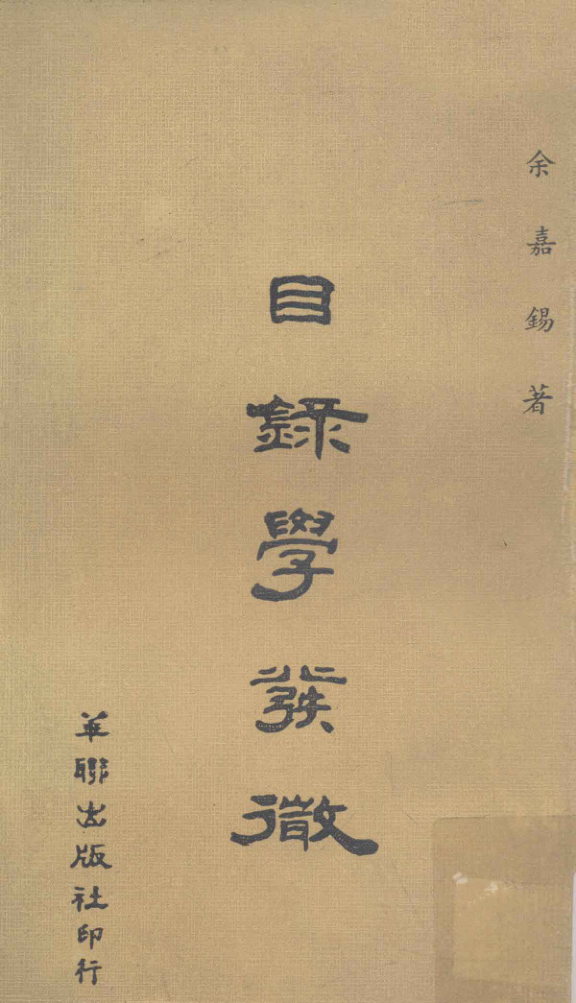 余嘉錫著
目錄學發微
華聯出版社印行